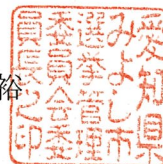 愛知県
みよし市
選挙管理
委員会委
員長之印
裕